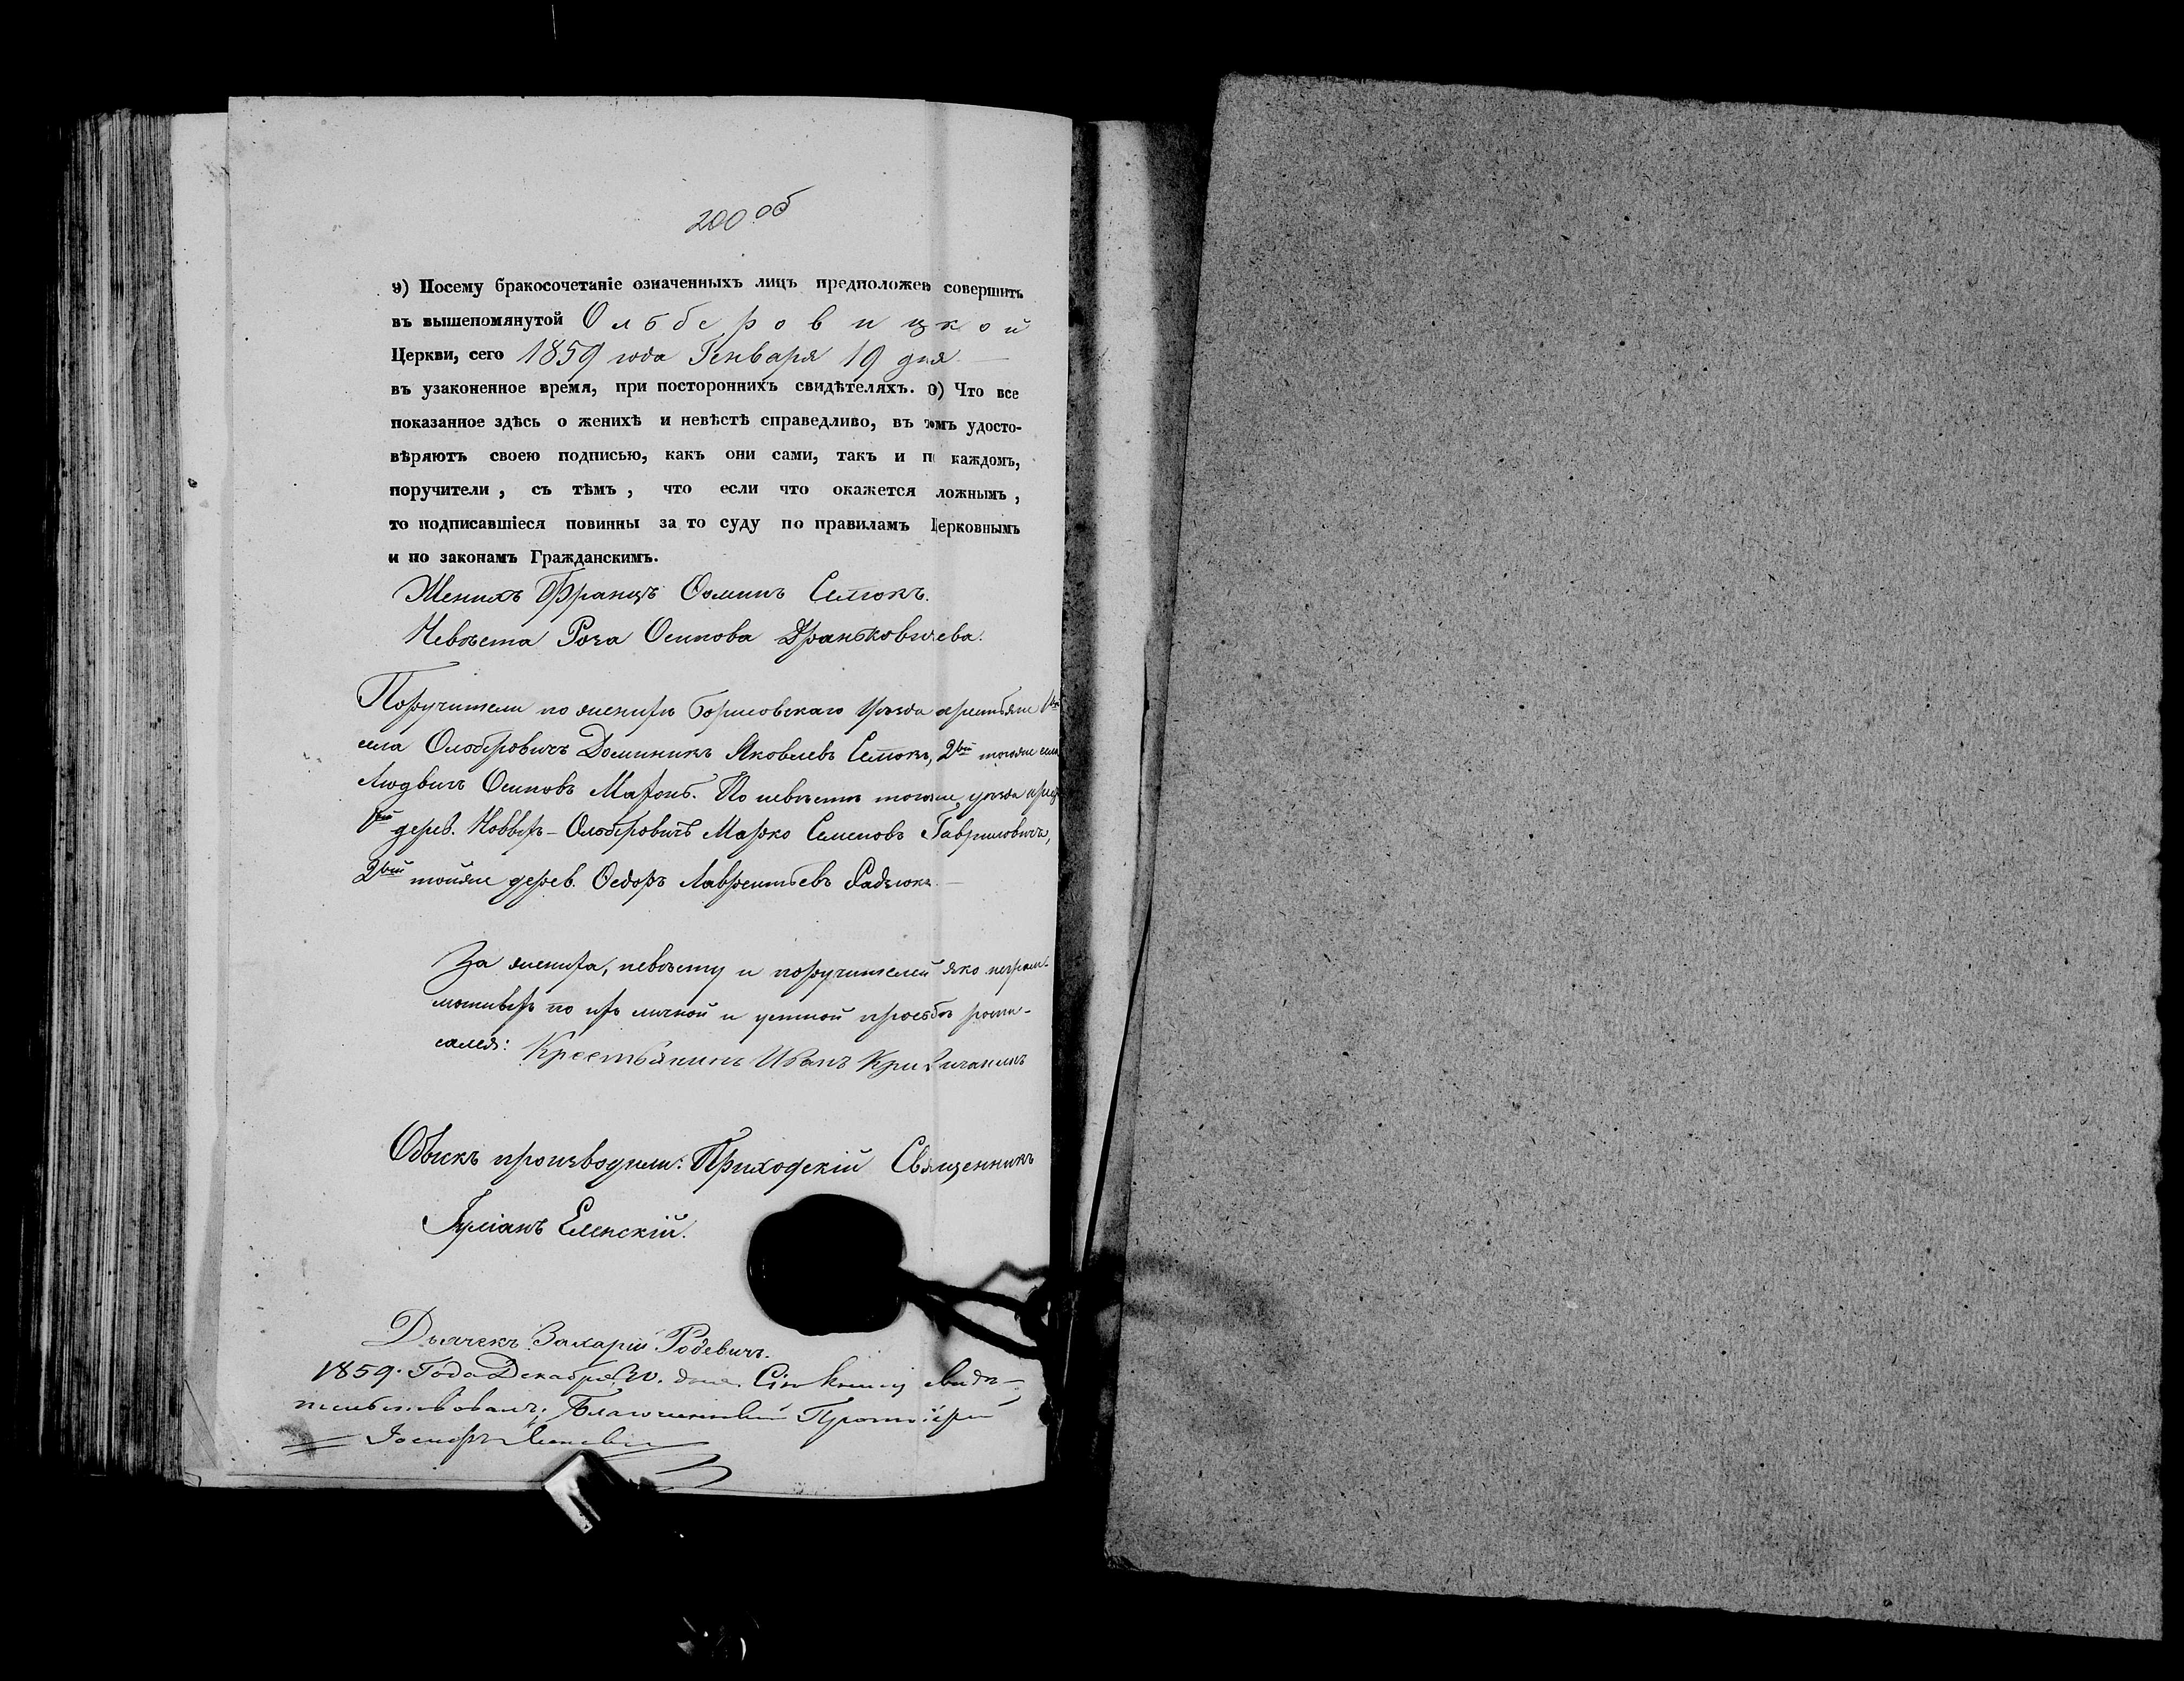 200 об
9) Посему бракосочетаніе означенныхъ лицъ предположен совершить
въ вышепомянутой Ольберовицкой
Церкви, сего 1859 года Генваря 19 дня
въ узаконенное время, при постороннихъ свидѣтеляхъ. 0) Что все
показанное здѣсь о женихѣ и невѣстѣ справедливо, въ томъ удосто-
вѣряютъ своею подписью, какъ они сами, такъ и п каждомъ,
поручители, съ тѣмъ, что если что окажется ложнымъ,
то подписавшіеся повинны за то суду по правиламъ Церковнымъ
и по законамъ Гражданскимъ.
Женихъ Францъ Ѳоминъ Семокъ.
Невѣста Роза Осипова Драньковичева.
Поручители по женихѣ Борисовскаго Уѣзда крестьяне 1й
села Ольберовичъ Доминикъ Яковлевъ Семокъ, 2ой тогоже села
Людвигъ Осиповъ Мазонь. По невѣстѣ тогоже уѣзда
1й дерев. Новыхъ-Ольберовичъ Марко Семеновъ Гавриловичъ,
2ой тойже дерев. Ѳедоръ Лаврентьевъ Радзюкъ.
За жениха, невѣсту и поручителей яко неграм-
мотныхъ по ихъ личной и устной просьбѣ роспи-
сался: Крестьянинъ Иванъ Кривичанинъ
Обыскъ производили: Приходскій Священникъ
Гуліанъ Еленскій.
Дьячекъ Захарій Родевичъ.
1859. Года Декабря 20. дня. Сію книгу свидѣ-
тельствовалъ; Благочинный Протоіерей
Іосифъ